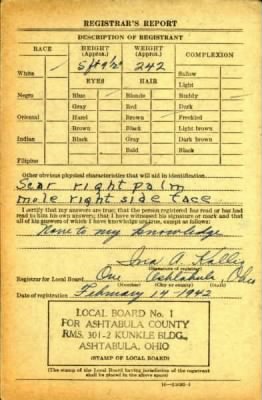 REGISTRAR'S REPORT
DESCRIPTION OF REGISTRANT
RACE HEIGHT (Approx.) WEIGHT (Approx.) COMPLEXION
White 5 ft 9½" 242 Sallow
EYES HAIR Light
Negro Blue Blonde Ruddy
Gray Red Dark
Oriental Hazel Brown Freckled
Brown Black Light brown
Indian Black Gray Dark brown
Bald Black
Filipino
Other obvious physical characteristics that will aid in identification
Scar right palm
mole right side face
I certify that my answers are true; that the person registered has read or has had
read to him his own answers; that I have witnessed his signature or mark and that
all of his answers of which I have knowledge are true, except as follows:
None to my knowledge
Ina A. Kallio
(Signature of registrar)
Registrar for Local Board One Ashtabula Ohio
(Number) (City or county) (State)
Date of registration February 14 1942
LOCAL BOARD No. 1
FOR ASHTABULA COUNTY
RMS. 301-2 KUNKLE BLDG.,
ASHTABULA, OHIO
(STAMP OF LOCAL BOARD)
(The stamp of the Local Board having jurisdiction of the registrant
shall be placed in the above space.)